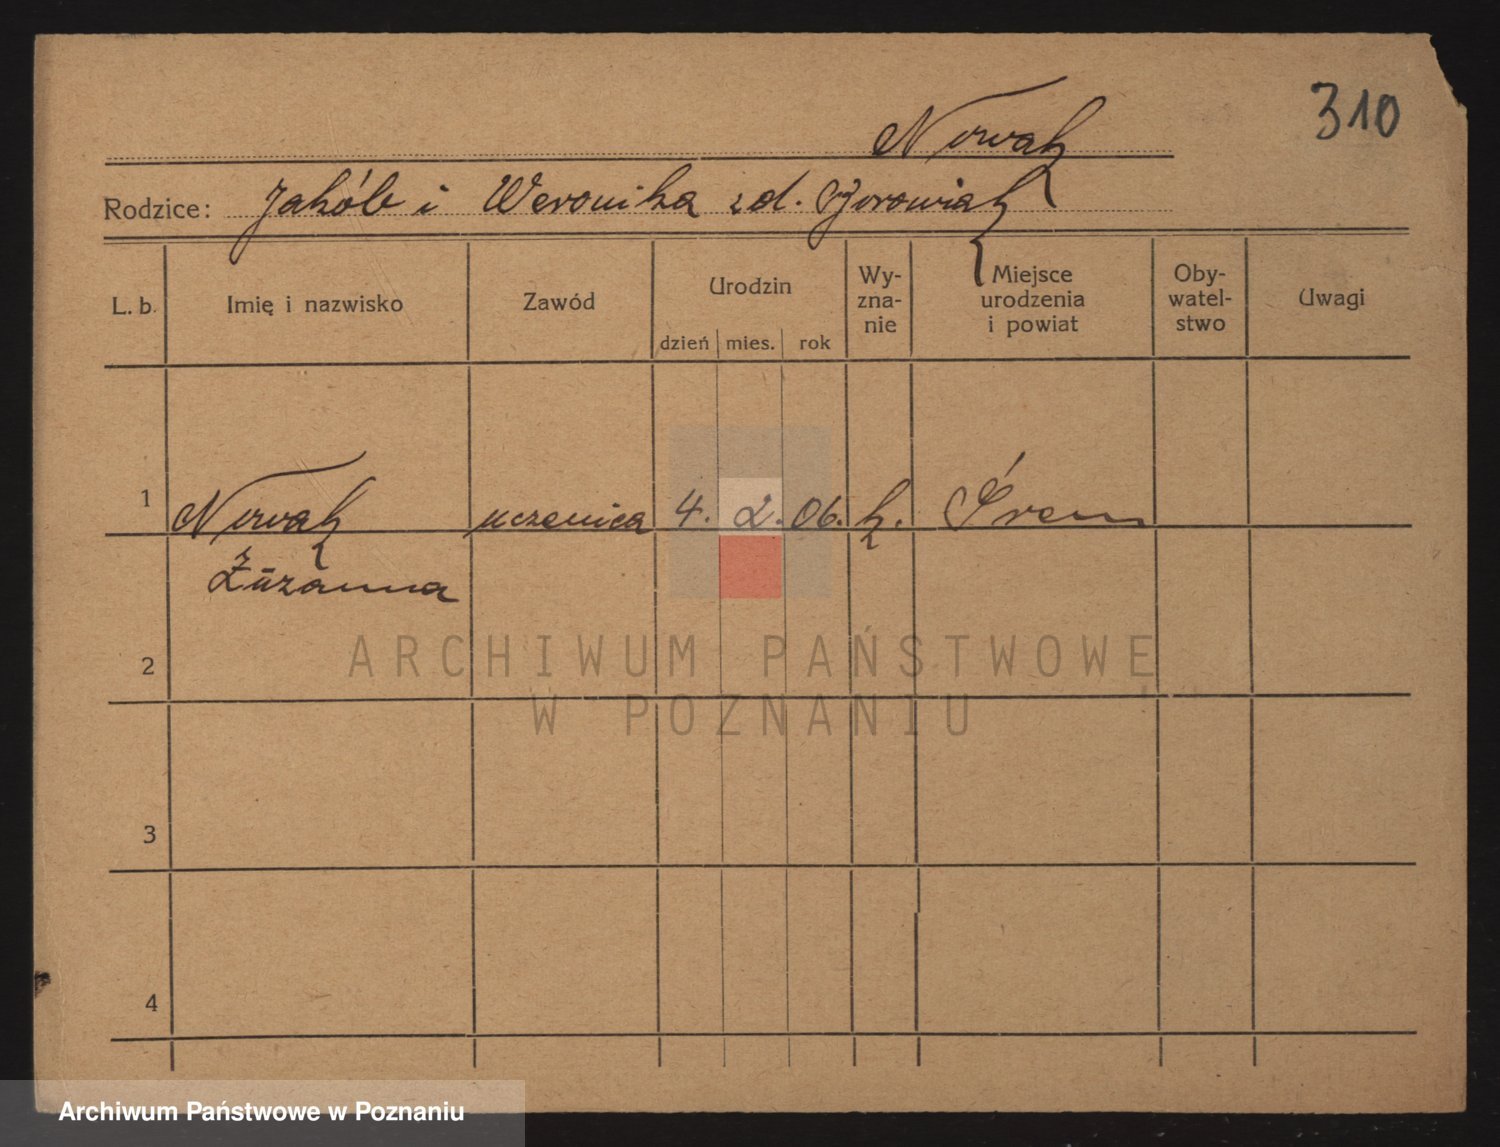 310
Nowak
Rodzice: Jakób i Weronika zd.
L. b. Imię i nazwisko Zawód Urodzin dzień mies. rok Wy-zna-nie Miejsce urodzenia i powiat Oby-watel-stwo Uwagi
1 Nowak uczenica 4. 2. 06. k. Śrem
Zuzanna
2
ARCHIWUM PAŃSTWOWE
W POZNANIU
3
4
Archiwum Państwowe w Poznaniu